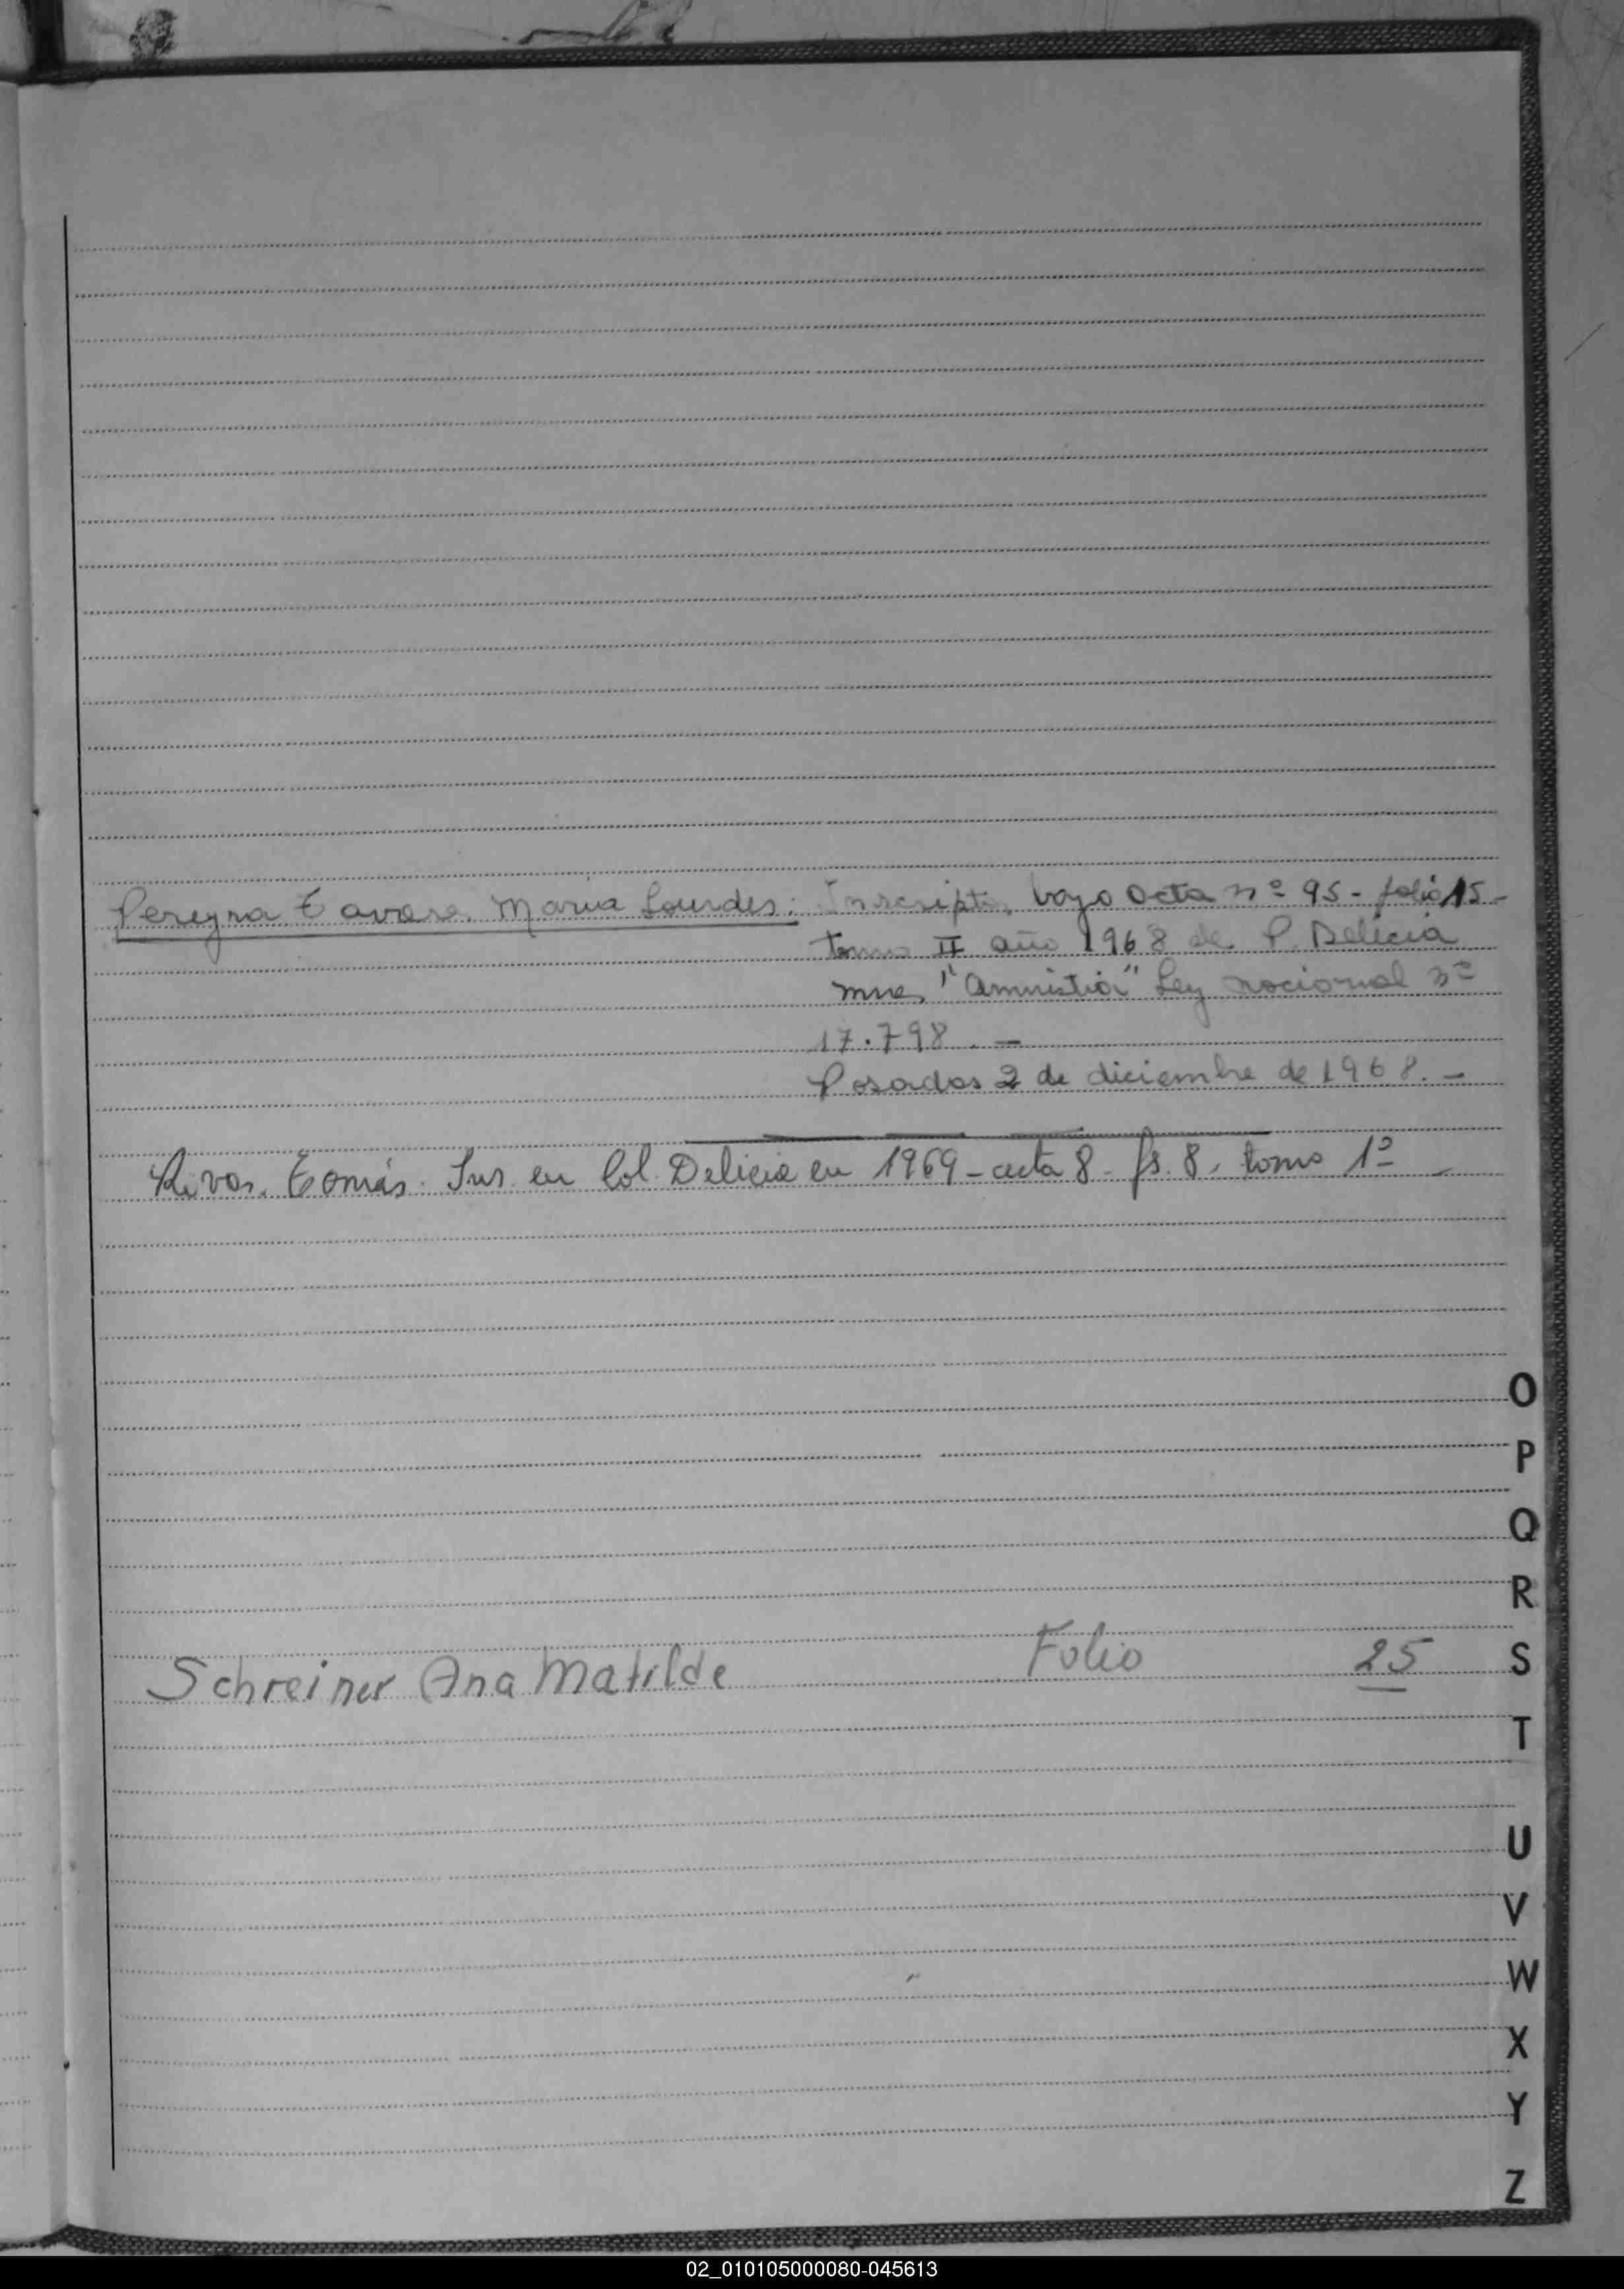 Pereyra Tavare Maria Lourdes: Inscripta bajo acta nº 95 - folio 15 -
tomo II año 1968 de P. Delicia
mnes "amnistia" Ley nacional nº
17.798. -
Posadas 2 de diciembre de 1968. -
Rivas, Tomás. Ins en Col Delicia en 1969 - acta 8 - fs. 8, tomo 1º -
O
P
Q
R
Schreiner Ana Matilde Folio 25
S
T
U
V
W
X
Y
Z
02_010105000080-045613